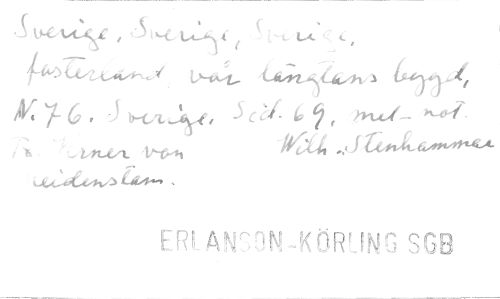 Sverige, Sverige, Sverige,
fosterland, vår längtans bygd,
N. 76. Sverige. Sid. 69, mel-not.
Verner von Wilh. Stenhammar
Heidenstam.
ERLANSON-KÖRLING SGB